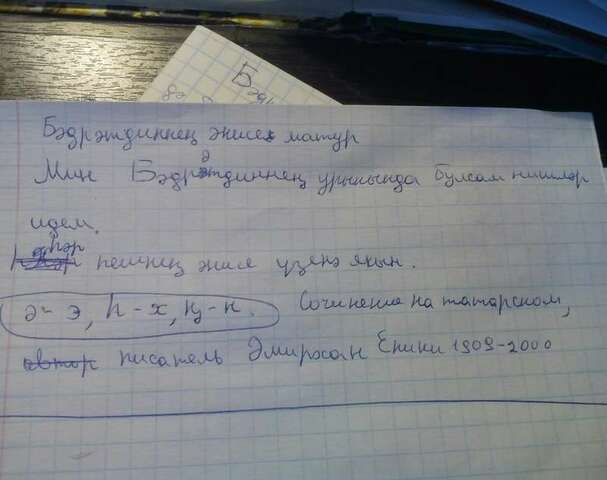 Бәдр
Бәдрәтдиннең әнисе матур
Мин Бәдрәтдиннең урынында булсам нишләр
идем.
һәр
кешнең әнисе үзенә якын.
ә - э, һ - х, ң - н. Сочинение на татарском,
автор писатель Әмирхан Еники 1909-2000